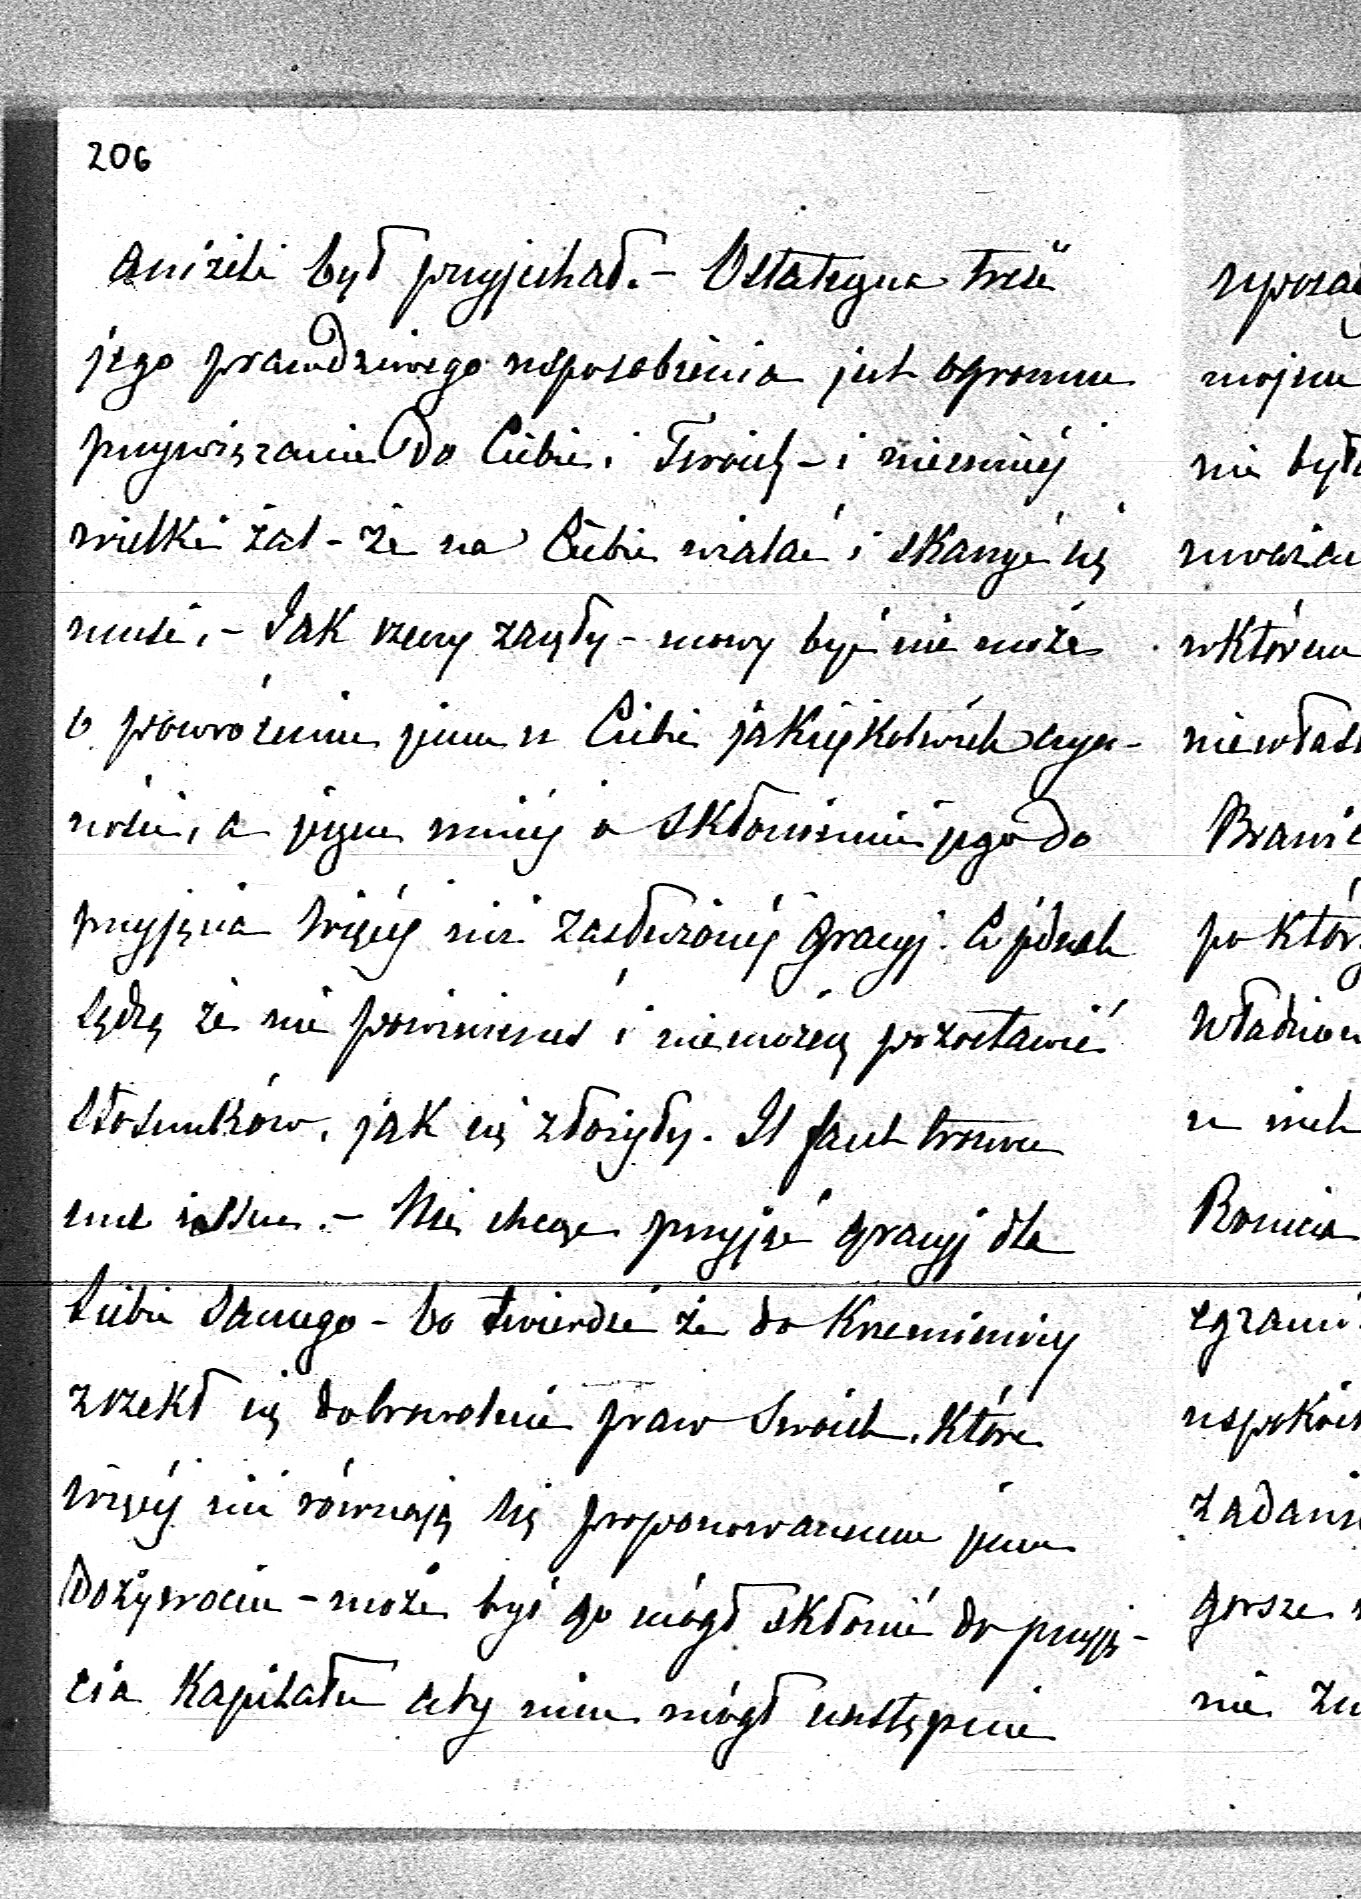 206
aniżeli był przyjechał. – Ostateczna treść
jego prawdziwego usposobienia jest ogromne
przywiązanie do Ciebie i Twoich – i niemniéj
wielki żal – że na Ciebie i skarżyć się
musi. – Jak rzeczy zaszły – mowy być nie może
o powróceniu jemu u Ciebie jakiejkolwiek czyn-
ności, a jeszcze mniéj o skłonieniu jego do
przyjęcia więcéj niż zasłużonéj gracyj. Co jednak
sądzę że nie powinieneś i niemożesz pozostawić
stosunków, jak się złożyły. Il faut trouver
une issue. – Nie chcąc przyjąć gracyj dla
siebie samego – bo twierdzi że do Krzemienicy
zrzekł się dobrowolnie praw swoich, które
więcéj niż równają się proponowanemu jemu
dożywociu – może byś go mógł skłonić do przyję-
cia Kapitału aby nim mógł następnie
mojem
nie było
w którem
niewłaś
Brani
po któr
Władzio
u nich
Ronicia
uspokoi
zadani
gorsze
nie